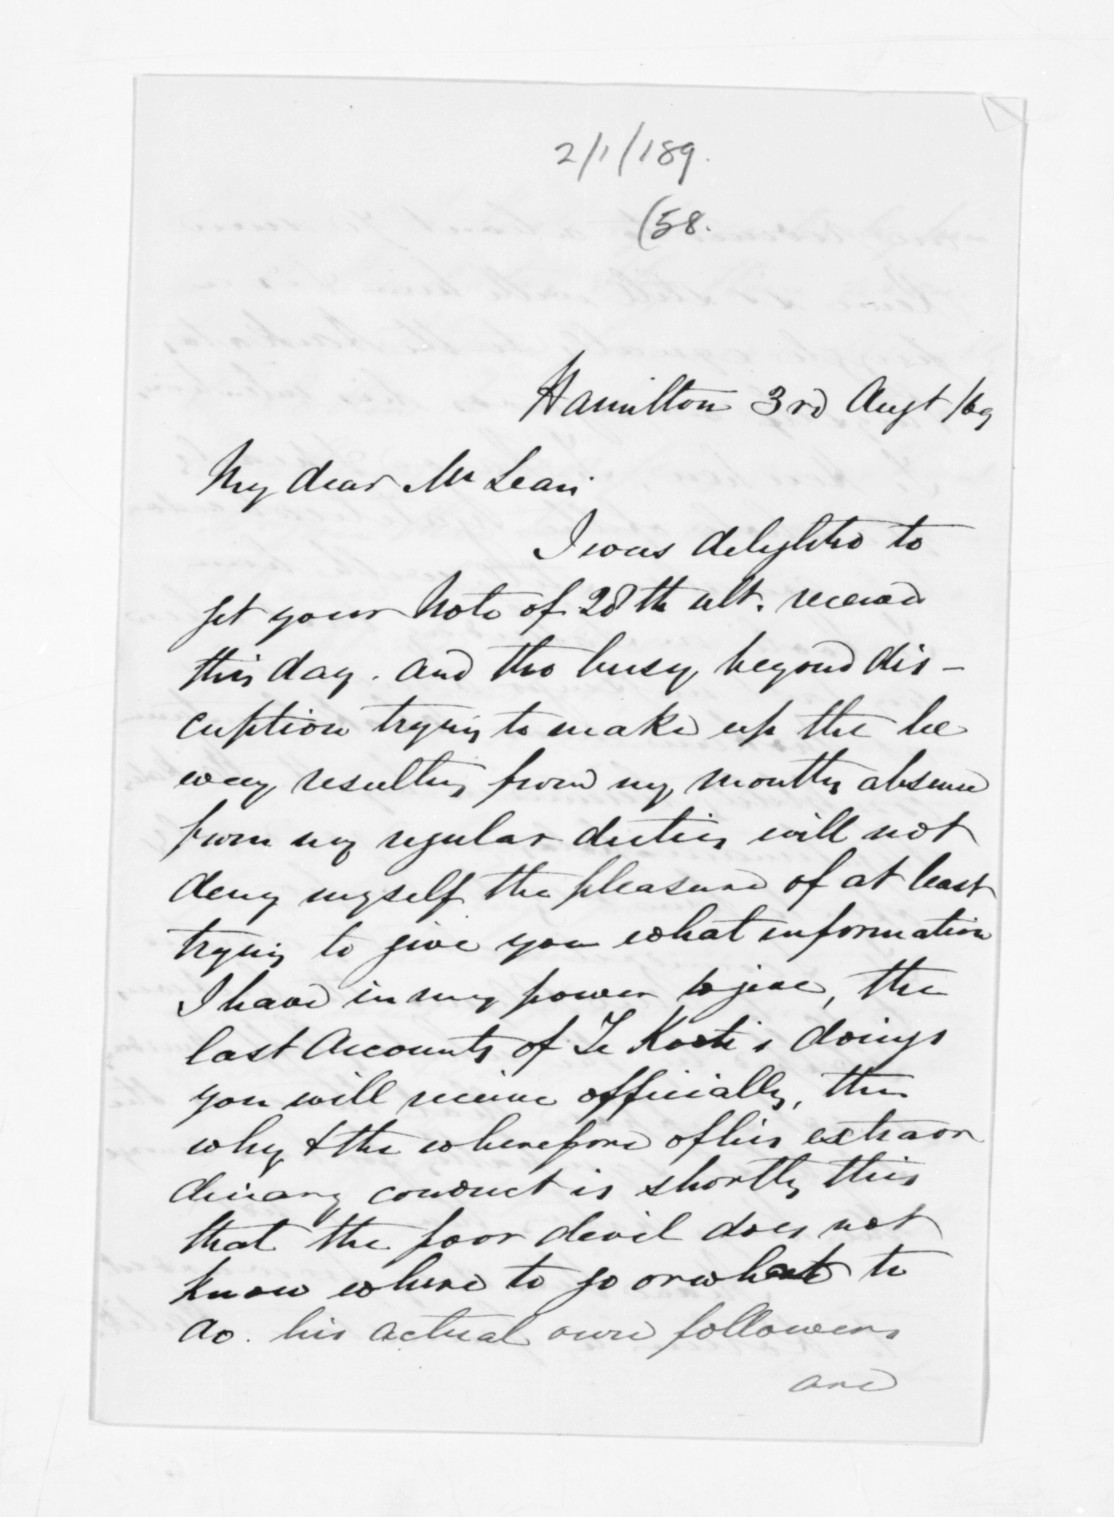 2/1/189.
(58.
Hamilton 3rd Augt /69
My dear McLean
I was delighted to
get your Note of 28th ult. received
this day. and tho busy beyond dis-
cription trying to make up the lee
way resulting from my months absence
from my regular duties will not
deny myself the pleasure of at least
trying to give you what information
I have in my power to give, the
last Accounts of Te Kooti's doings
you will receive officially, the
why & the wherefore of his extraor
dinary conduct is shortly this
that the poor devil does not
know where to go or what to
do. his actual own followers
are